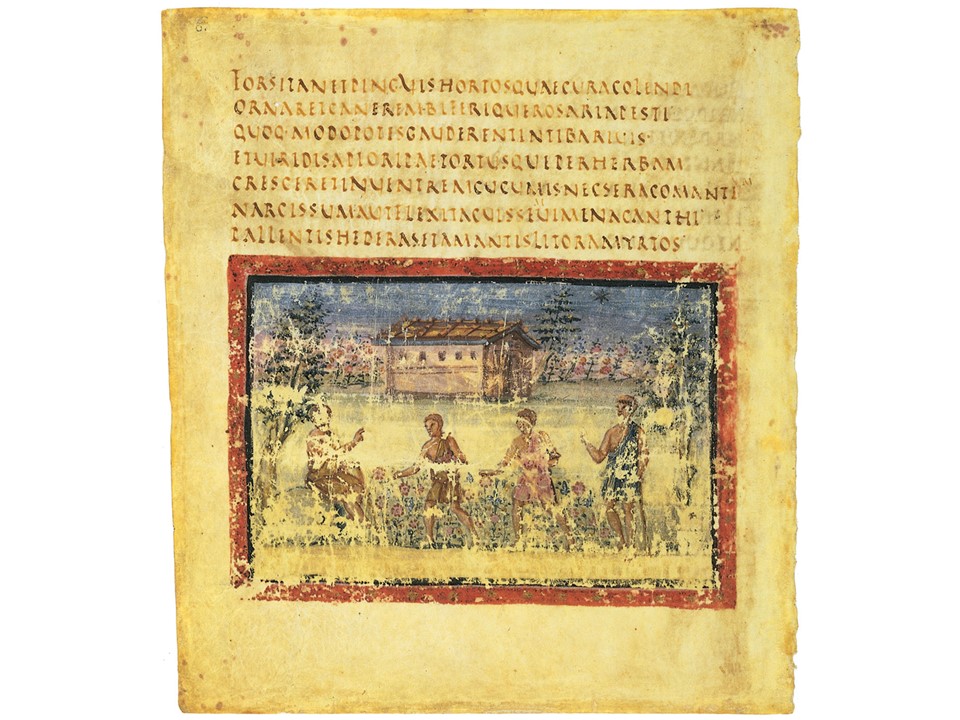 FORSITANETPINGVISHORTOSQUAECURACOLENDI
ORNARETCANEREMBIFERIQUEROSARIAPESTI
QUOQ·MODOPOTISGAUDERENTINTIBARIUIS·
ETUIRIDISAPIORIPAETORTUSQUEPERHERBAM
CRESCERETINUENTREMCUCUMISNECSERACOMANTEM
NARCISSUMAUTFLEXITACUISSEUIMENACANTHI
PALLENTISHEDERASETAMANTISLITORAMYRTOS